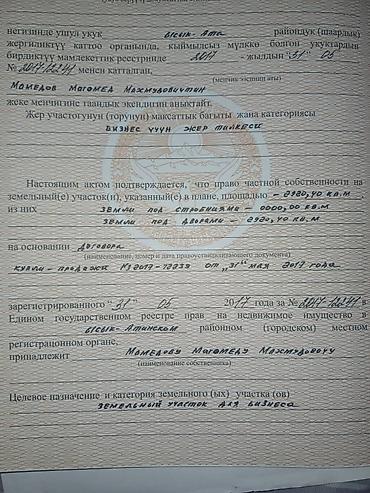 негизинде ушул укук Ысык-Ата райондук (шаардык)
жергиликтүү каттоо органында, кыймылсыз мүлккө болгон укуктардын
бирдиктүү мамлекеттик реестринде 2017 - жылдын "31" 05
№ 2017-12241 менен катталган,
(менчик ээсинин аты)
Мамедов Магомед Махмудовичтин
жеке менчигине таандык экендигин аныктайт.
Жер участогунун (торунун) максаттык багыты жана категориясы
бизнес үчүн жер тилкеси
Настоящим актом подтверждается, что право частной собственности на
земельный(е) участок(и), указанный(е) в плане, площадью - 2920,40 кв.м
из них земли под строениями - 0000,00 кв.м
земли под дворами - 2920,40 кв.м
на основании Договора
(наименование, номер и дата правоустанавливающего документа)
купли-продажи №2017-12239 от "31" мая 2017 года
зарегистрированного "31" 05 2017 года за № 2017-12241 в
Едином государственном реестре прав на недвижимое имущество в
Ысык-Атинском районном (городском) местном
регистрационном органе,
принадлежит Мамедову Магомеду Махмудовичу
(наименование собственника)
Целевое назначение и категория земельного (ых) участка (ов)
земельный участок для бизнеса